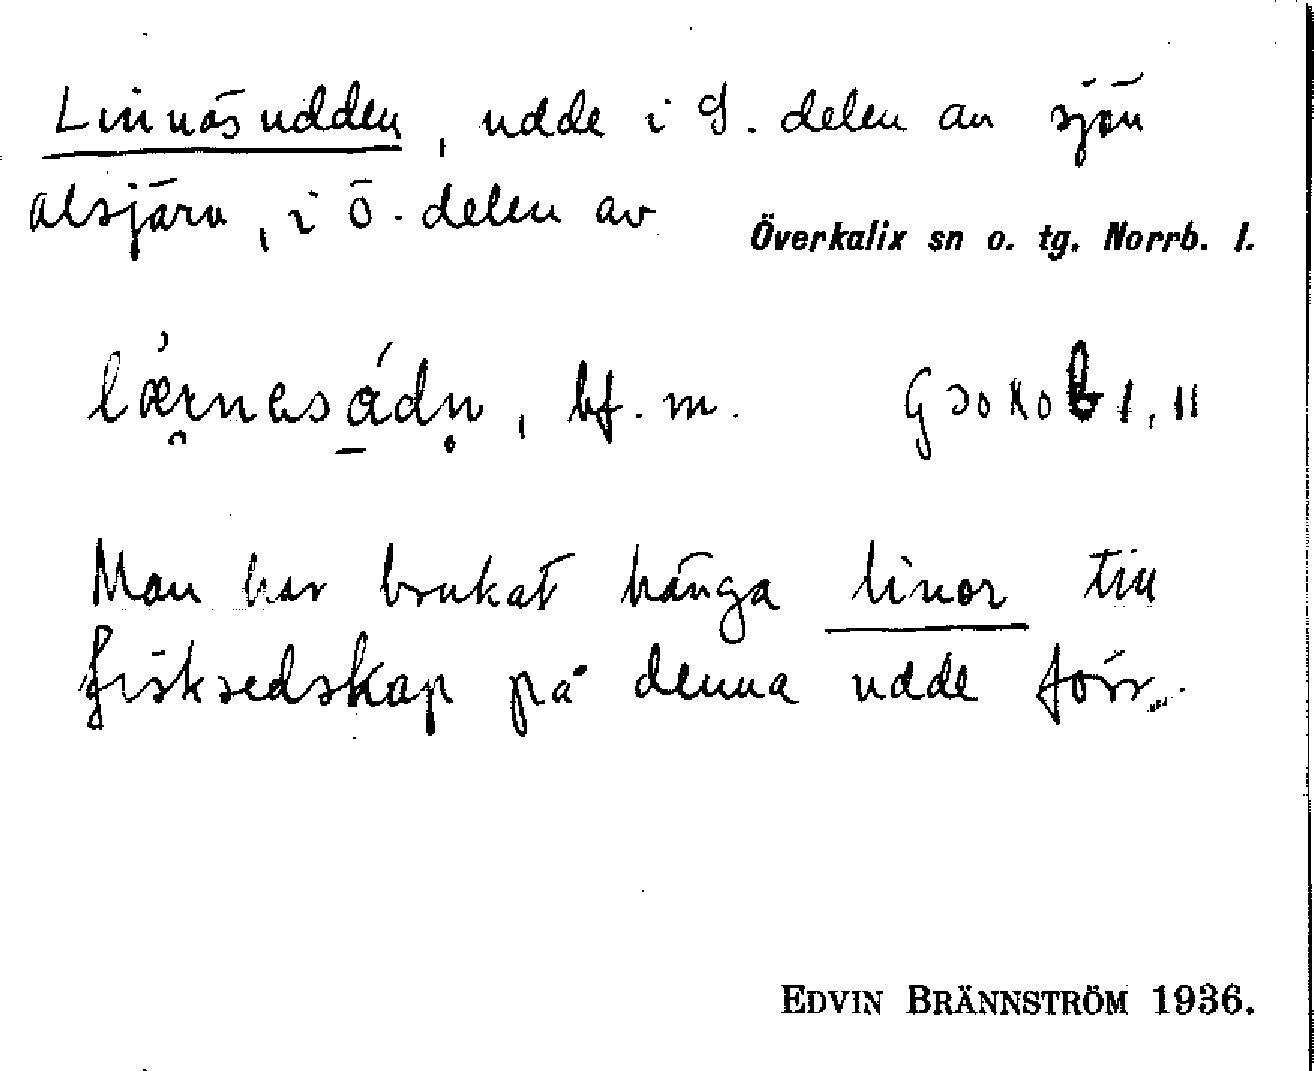 Linnäsudden, udde i S. delen av sjön
Alsjärv, i Ö. delen av
Överkalix sn o. tg. Norrb. l.
bf. m.
Man har brukat hänga linor till
fiskredskap på denna udde förr.
EDVIN BRÄNNSTRÖM 1936.